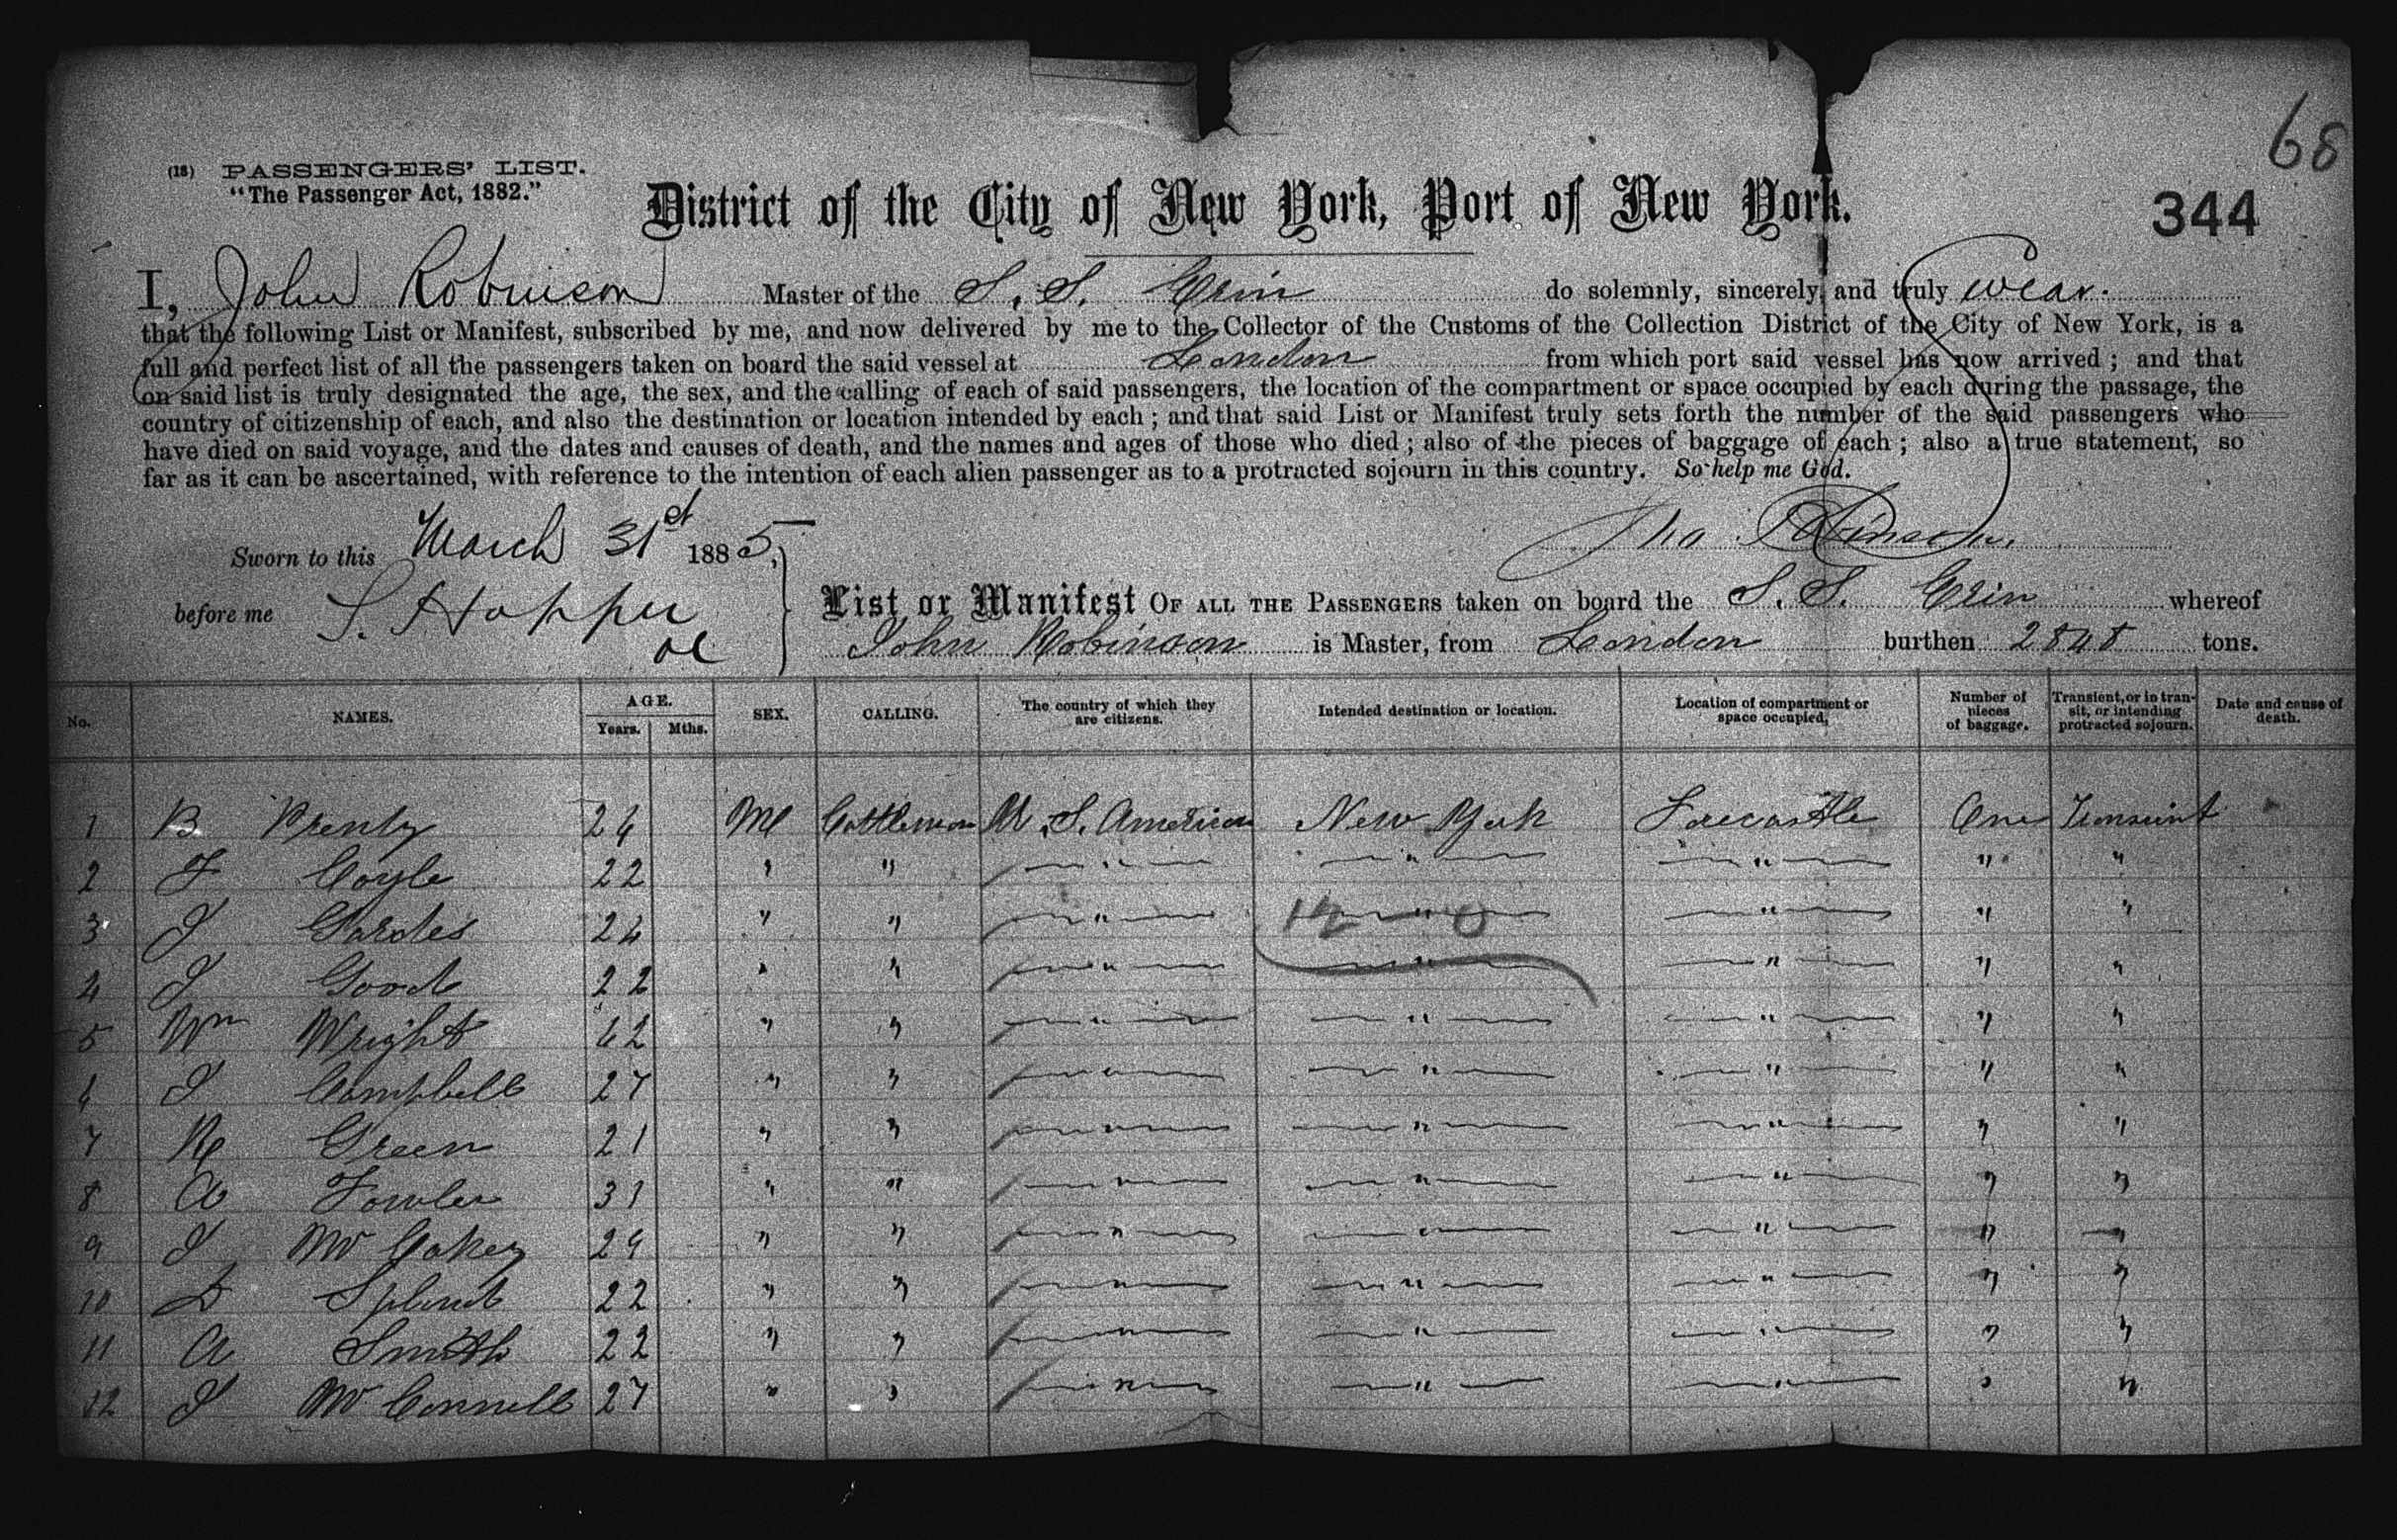 68
(18) PASSENGERS' LIST.
"The Passenger Act, 1882."
District of the City of New York, Port of New York.
344
I, John Robinson Master of the S. S. Erin do solemnly, sincerely, and truly swear
that the following List or Manifest, subscribed by me, and now delivered by me to the Collector of the Customs of the Collection District of the City of New York, is a
full and perfect list of all the passengers taken on board the said vessel at London from which port said vessel has now arrived; and that
on said list is truly designated the age, the sex, and the calling of each of said passengers, the location of the compartment or space occupied by each during the passage, the
country of citizenship of each, and also the destination or location intended by each; and that said List or Manifest truly sets forth the number of the said passengers who
have died on said voyage, and the dates and causes of death, and the names and ages of those who died; also of the pieces of baggage of each; also a true statement, so
far as it can be ascertained, with reference to the intention of each alien passenger as to a protracted sojourn in this country. So help me God.
Jno Robinson
Sworn to this March 31st 1885,
before me S. Hopper
List or Manifest OF ALL THE PASSENGERS taken on board the S. S. Erin whereof
John Robinson is Master, from London burthen 2848 tons.
No. NAMES. AGE. Years. Mths. SEX. CALLING. The country of which they are citizens. Intended destination or location. Location of compartment or space occupied. Number of pieces of baggage. Transient, or in transit, or intending protracted sojourn. Date and cause of death.
1 B. 26 M Cattleman U.S. American New York Forecastle One Transient
2 F Coyle 22 " " " " " " "
3 J 26 " " " " " " "
12 0
4 J Good 22 " " " " " " "
5 Wm Wright 62 " " " " " " "
6 J Campbell 27 " " " " " " "
7 R Green 21 " " " " " " "
8 A Fowler 31 " " " " " " "
9 J 29 " " " " " " "
10 D 22 " " " " " " "
11 A Smith 22 " " " " " " "
12 J McConnell 27 " " " " " " "